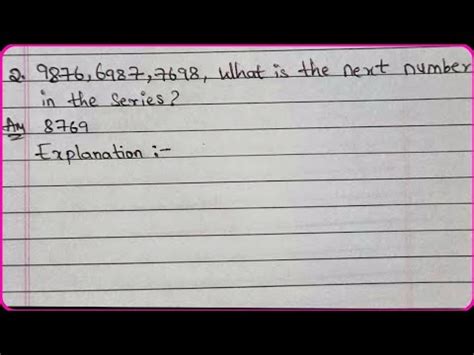 Q. 9876, 6987, 7698, What is the next number
in the series?
Ans 8769
Explanation :-